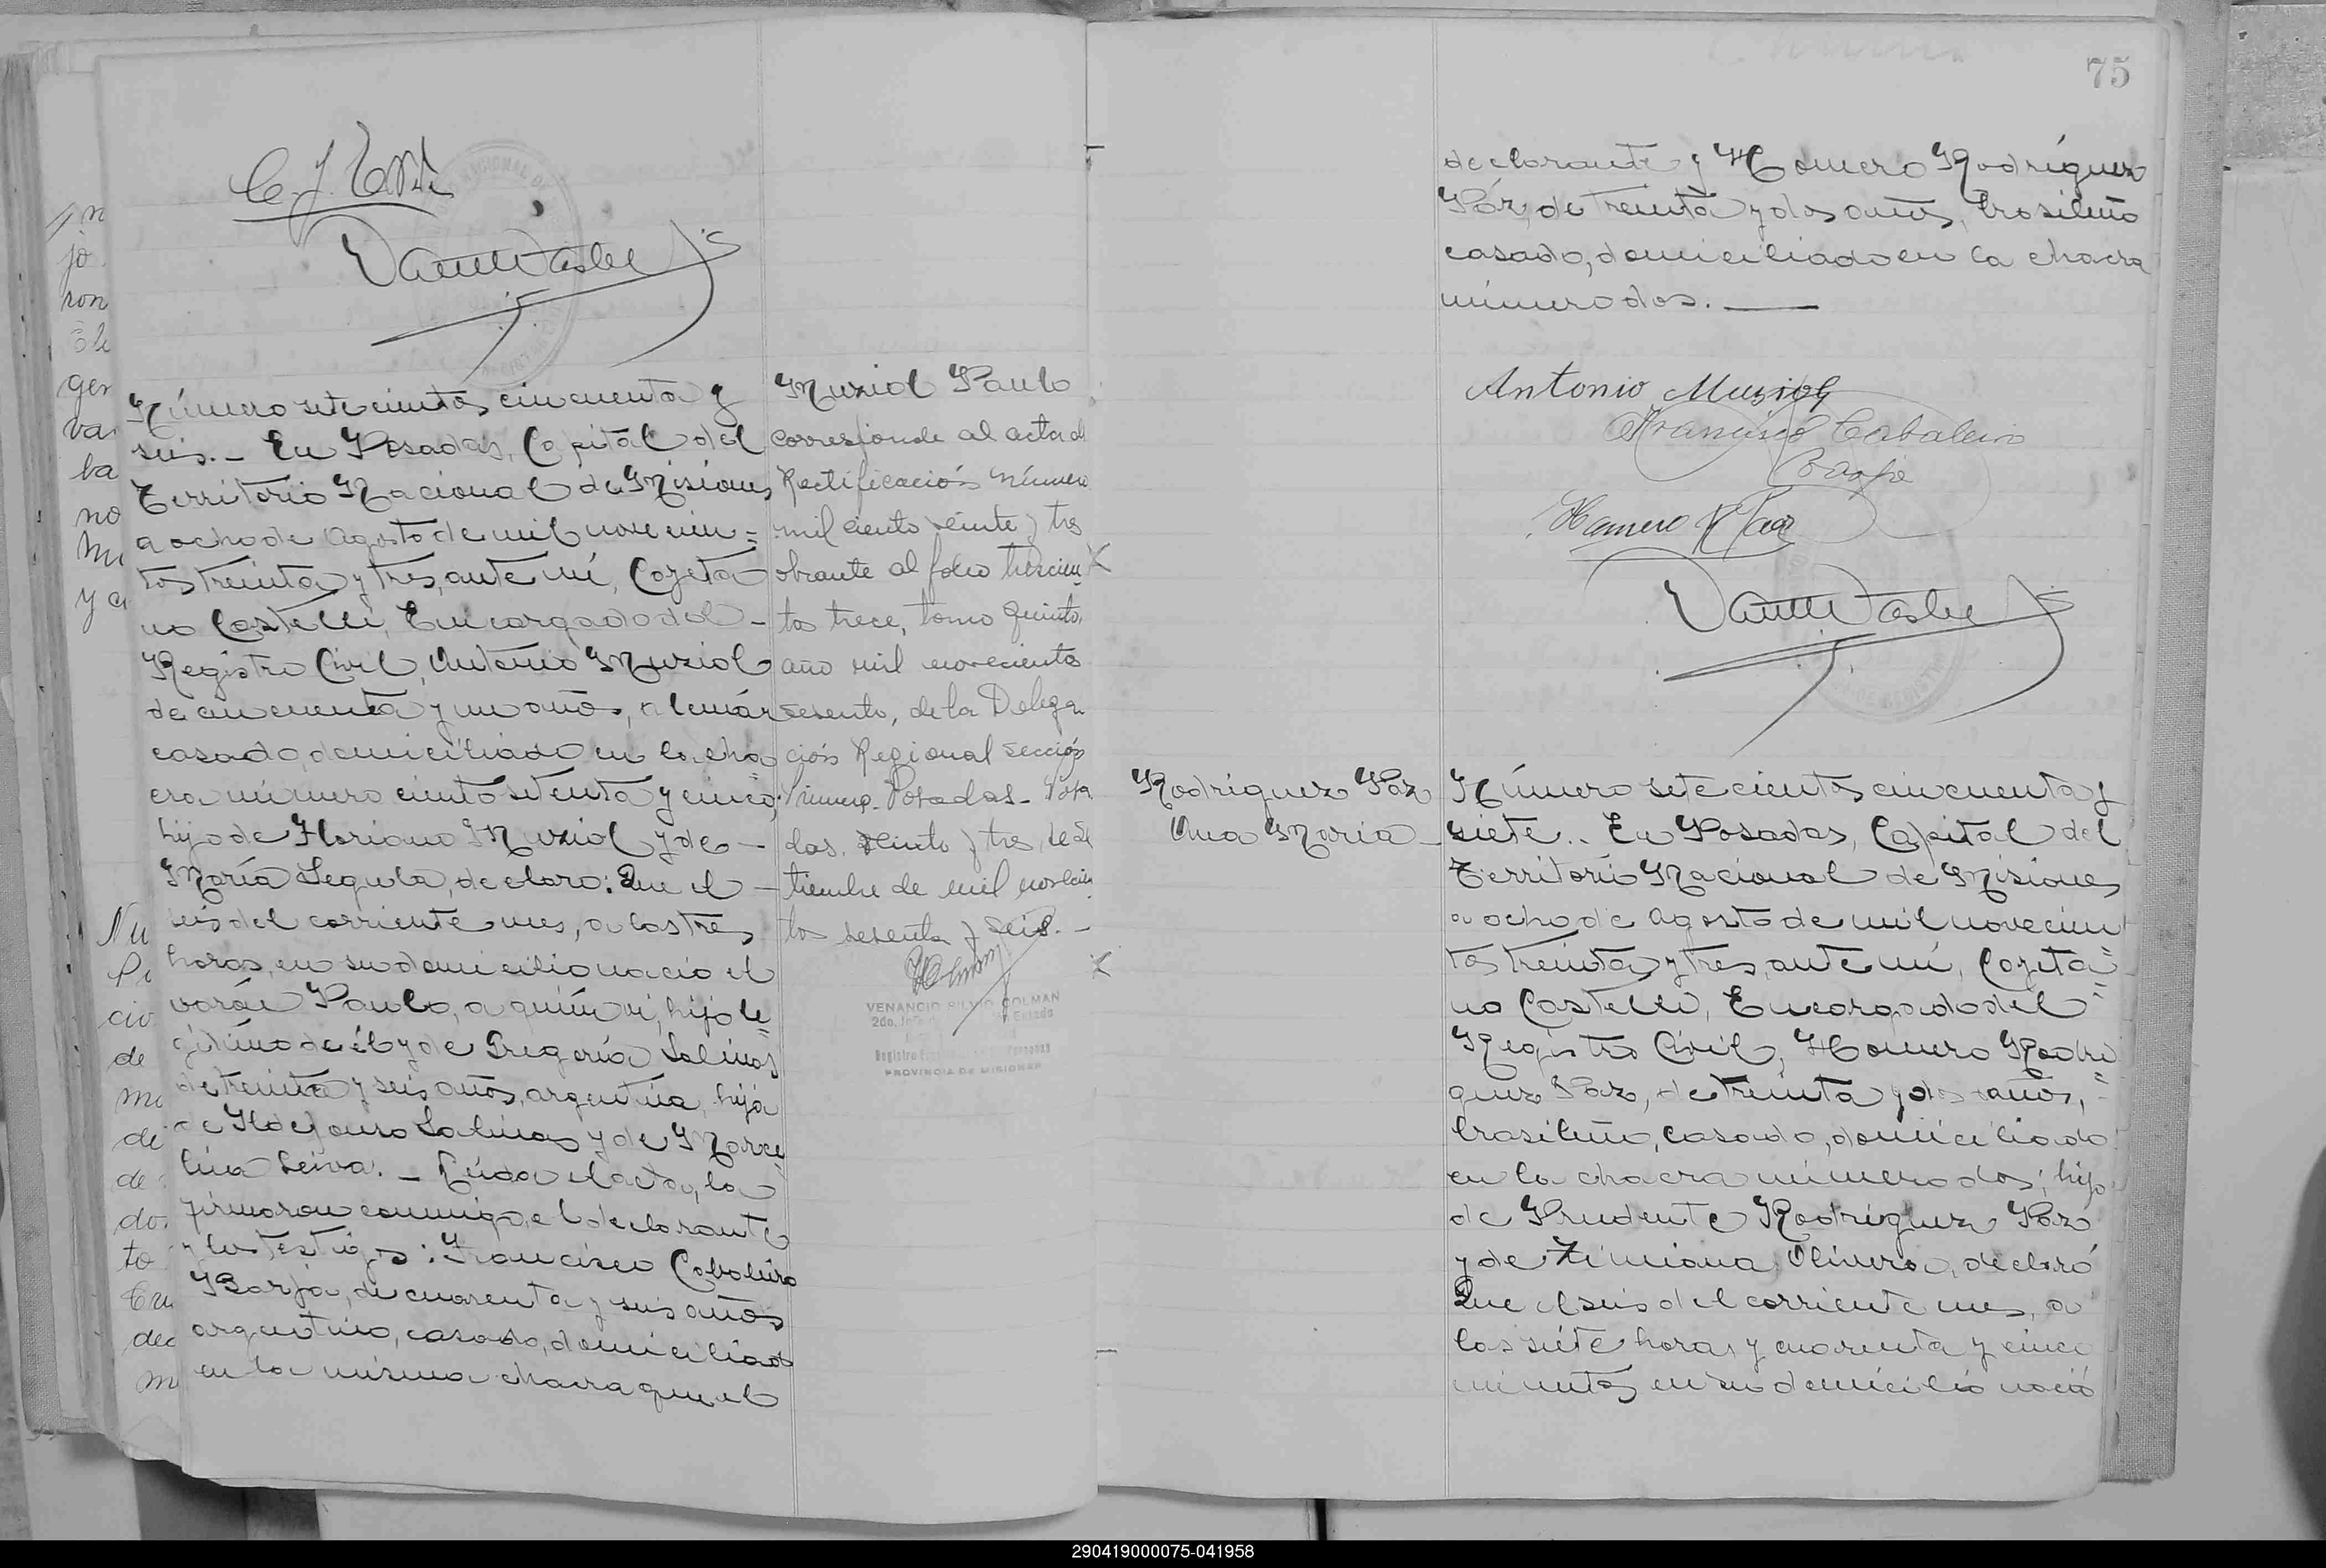 Número setecientos cincuenta y
seis.- En Posadas, Capital del
Territorio Nacional de Misiones
a ocho de Agosto de mil novecien=
tos treinta y tres, ante mí, Cayeta
no Castelli, Encargado del -
Registro Civil, Antonio Muziol
de cincuenta y un años, alemán
casado, domiciliado en la cha=
cra número ciento setenta y cinco,
hijo de Floriano Muziol y de -
María Segula, declaro: Que el -
seis del corriente mes, a las tres
horas, en su domicilio nació el
varón Paulo, a quién vi, hijo le=
gítimo de él y de Gregoria Salinas
de treinta y seis años, argentina, hija
de Ildefonso Salinas y de Marce
lina Leiva. - Leida el acta, la
firmaron conmigo, el declarante
y los testigos: Francisco Cabaleiro
Borja, de cuarenta y seis años
argentino, casado, domiciliado
en la misma chacra que el
Muziol Paulo
Corresponde al acta de
Rectificación número
mil ciento veinte y tres
obrante al folio trescien
tos trece, tomo quinto,
año mil novecientos
sesenta, de la Delega
ción Regional Sección
Primera - Posadas - Posa
das, veinte y tres de Se
tiembre de mil novecien
tos sesenta y seis. -
VENANCIO SILVIO COLMAN
PROVINCIA DE MISIONES
75
declarante y Homero Rodríguez
Páz, de treinta y dos años, brasileño
casado, domiciliado en la chacra
número dos. —
Antonio Muziol
Francisco Cabaleiro
Borja
Homero R Paz
Rodriguez Paz
Ana María -
Número setecientos cincuenta y
siete.. En Posadas, Capital del
Territorio Nacional de Misiones
a ocho de Agosto de mil novecien
tos treinta y tres, ante mí, Cayeta=
no Castelli, Encargado del =
Registro Civil, Homero Rodri
guez Paz, de treinta y dos años, =
brasileño, casado, domiciliado
en la chacra número dos; hijo
de Prudente Rodríguez Paz
y de Zimiana Olivera, declaró
Que el seis del corriente mes, a
las siete horas y cuarenta y cinco
minutos en su domicilio nació
290419000075-041958